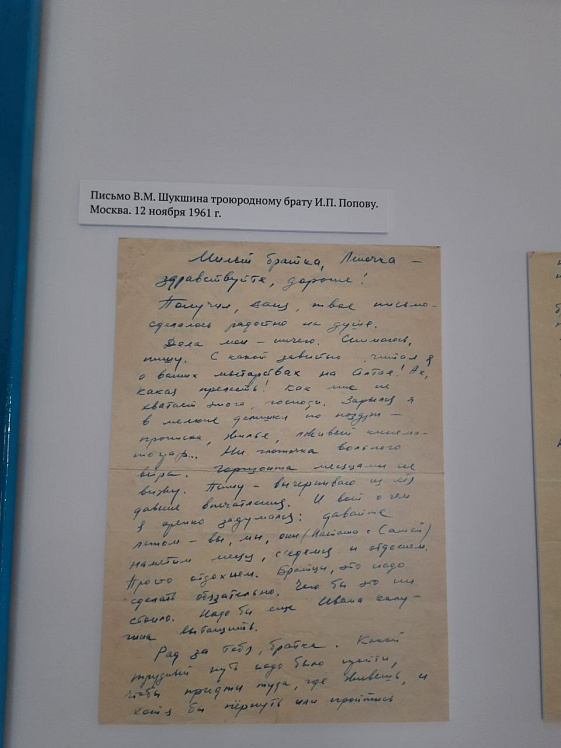 Письмо В.М. Шукшина троюродному брату И.П. Попову.
Москва. 12 ноября 1961 г.
Милый братка, Леночка –
здравствуйте, дорогие!
Получил, Вань, твое письмо –
сделалось радостно на душе.
Дела мои – ничего. Снимаюсь,
пишу. С какой завистью читал я
о ваших мытарствах на Алтае! Ах,
какая прелесть! Как мне не
хватает этого, господи. Зарылся я
в мелкие делишки по ноздри –
прописка, жилье,
Ни глоточка вольного
ветра. Горизонта месяцами не
вижу. Пишу – вычерпываю из себя
давние впечатления. И вот о чем
я крепко задумался: давайте
летом – вы, мы, они (Наташа с Сашей)
наметим место, съедемся и отдохнем.
Просто отдохнем. Братцы, это надо
сделать обязательно. Чего бы это ни
стоило. Надо бы еще Ивана
вытащить.
Рад за тебя, братка. Какой
трудный путь надо было пройти,
чтобы придти туда, где живешь, и
хотя бы или пройтись